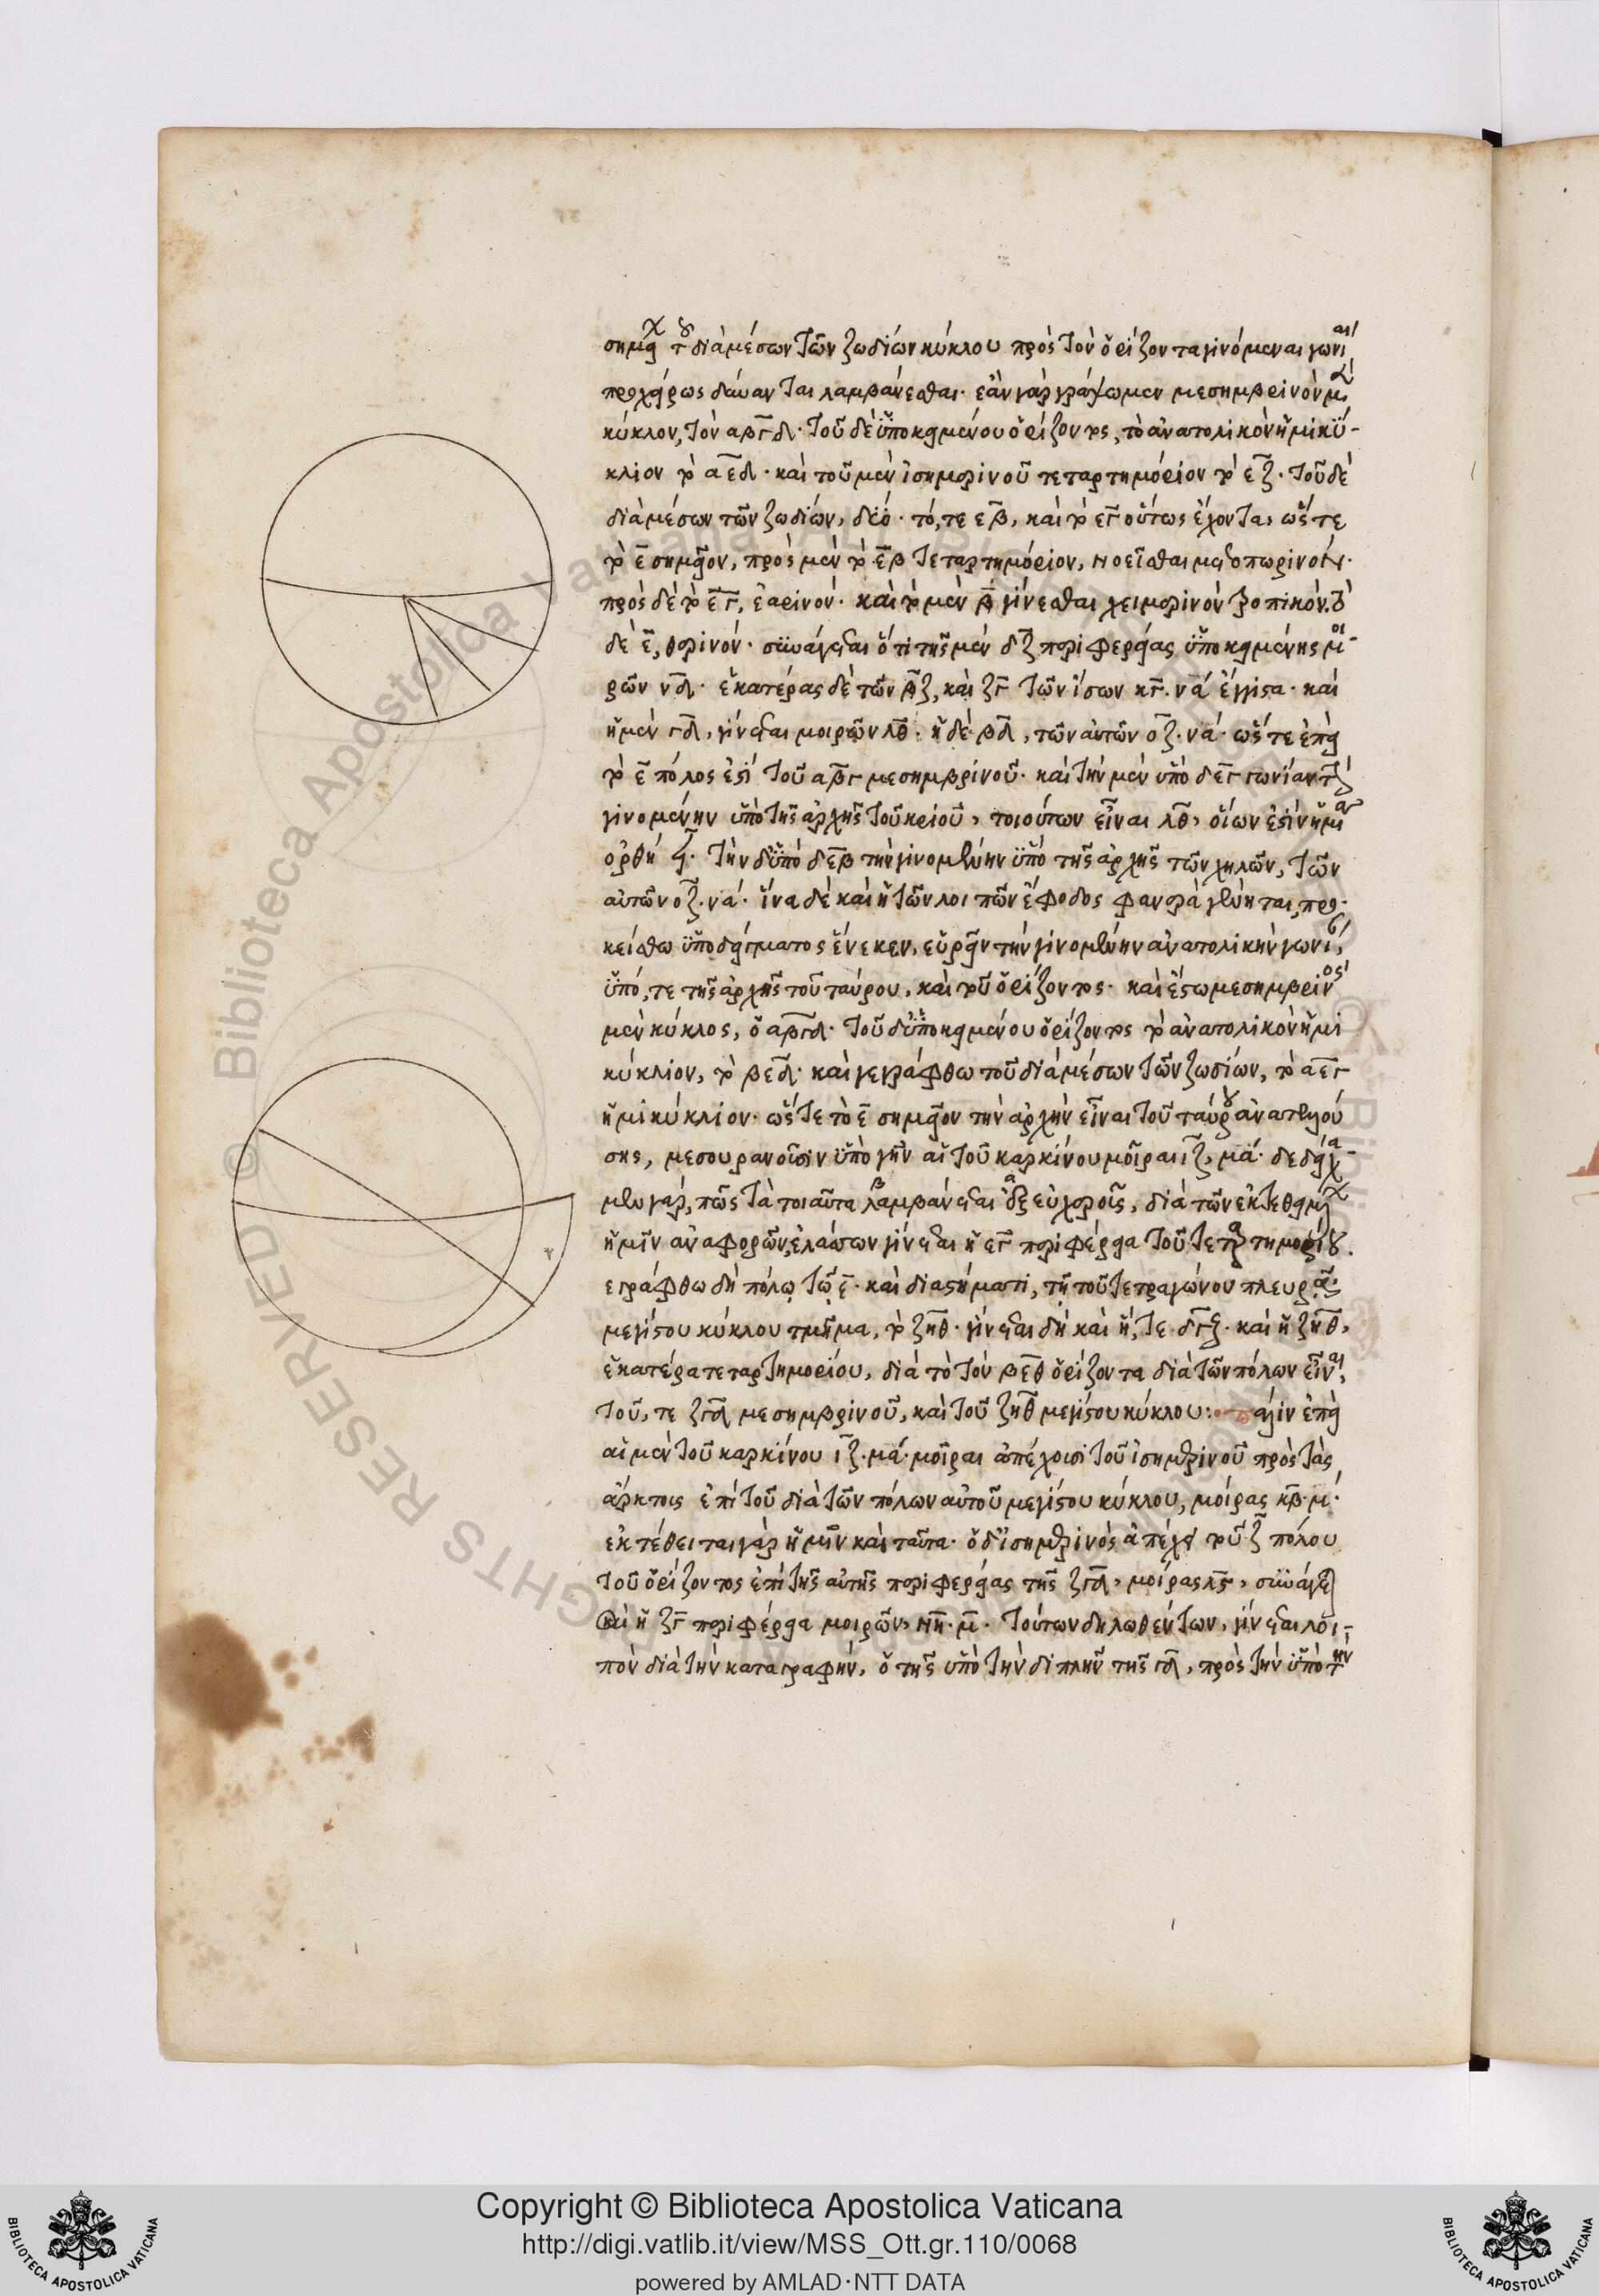 σημεῖα τοῦ διὰ μέσων τῶν ζωδίων κύκλου πρὸς τὸν ὁρίζοντα γινόμεναι γωνίαι
προχείρως δύνανται λαμβάνεσθαι· ἐὰν γὰρ γράψωμεν μεσημβρινὸν μὲν
κύκλον, τὸν αβγδ· τοῦ δὲ ὑποκειμένου ὁρίζοντος, τὸ ἀνατολικὸν ἡμικύ-
κλιον τὸ αεδ· καὶ τοῦ μὲν ἰσημερινοῦ τεταρτημόριον τὸ εζ· τοῦ δὲ
διὰ μέσων τῶν ζωδίων, δύο· τό, τε εβ, καὶ τὸ εγ οὕτως ἔχοντα, ὥστε
τὸ ε σημεῖον, πρὸς μὲν τὸ εβ τεταρτημόριον, νοεῖσθαι μετοπωρινόν·
πρὸς δὲ τὸ εγ, ἐαρινόν· καὶ τὸ μὲν β γίνεσθαι χειμερινὸν τροπικόν· τὸ
δὲ γ, θερινόν· συνάγεται ὅτι τῆς μὲν δζ περιφερείας ὑποκειμένης μοι-
ρῶν νδ· ἑκατέρας δὲ τῶν βζ, καὶ ζγ τῶν ἴσων κγ· να ἔγγιστα· καὶ
ἡ μὲν γδ, γίνεται μοιρῶν λθ· ἡ δὲ βδ, τῶν αὐτῶν οζ· να· ὥστε ἐπεὶ
τὸ ε πόλος ἐστὶ τοῦ αβγ μεσημβρινοῦ· καὶ τὴν μὲν ὑπὸ δεγ γωνίαν τὴν
γινομένην ὑπὸ τῆς ἀρχῆς τοῦ κριοῦ, τοιούτων εἶναι λθ, οἵων ἐστὶν ἡ μία
ὀρθὴ ϟ· τὴν δ' ὑπὸ δεβ τὴν γινομένην ὑπὸ τῆς ἀρχῆς τῶν χηλῶν, τῶν
αὐτῶν οζ· να· ἵνα δὲ καὶ ἡ τῶν λοιπῶν ἔφοδος φανερὰ γένηται, προ-
κείσθω ὑποδείγματος ἕνεκεν, εὑρεῖν τὴν γινομένην ἀνατολικὴν γωνίαν,
ὑπό, τε τῆς ἀρχῆς τοῦ ταύρου, καὶ τοῦ ὁρίζοντος· καὶ ἔστω μεσημβρινὸς
μὲν κύκλος, ὁ αβγδ· τοῦ δ' ὑποκειμένου ὁρίζοντος τὸ ἀνατολικὸν ἡμι
κύκλιον, τὸ βεδ· καὶ γεγράφθω τοῦ διὰ μέσων τῶν ζωδίων, τὸ αεγ
ἡμικύκλιον· ὥστε τὸ ε σημεῖον τὴν ἀρχὴν εἶναι τοῦ ταύρου ἀνατελλού
σης, μεσουρανοῦσιν ὑπὸ γῆν αἱ τοῦ καρκίνου μοῖραι ιζ, μα· δεδείχα-
μεν γάρ, πῶς τὰ τοιαῦτα λαμβάνεται εὐχερῶς, διὰ τῶν ἐκτεθειμένων
ἡμῖν ἀναφορῶν, ἐλάσσων γίνεται ἡ εγ περιφέρεια τοῦ τεταρτημορίου.
γεγράφθω δὴ πόλῳ τῷ ε· καὶ διαστήματι, τῇ τοῦ τετραγώνου πλευρᾷ·
μεγίστου κύκλου τμῆμα, τὸ ζηθ· γίνεται δὴ καὶ ἥ, τε δγζ· καὶ ἡ ζηθ,
ἑκατέρα τεταρτημορίου, διὰ τὸ τὸν βεθ ὁρίζοντα διὰ τῶν πόλων εἶναι,
τοῦ, τε ζγδ μεσημβρινοῦ, καὶ τοῦ ζηθ μεγίστου κύκλου: πάλιν ἐπεὶ
αἱ μὲν τοῦ καρκίνου ιζ· μα· μοῖραι ἀπέχουσι τοῦ ἰσημερινοῦ πρὸς τὰς
ἄρκτους ἐπὶ τοῦ διὰ τῶν πόλων αὐτοῦ μεγίστου κύκλου, μοίρας κβ· μ·
ἐκτέθειται γὰρ ἡμῖν καὶ ταῦτα· ὁ δ' ἰσημερινὸς ἀπέχει τοῦ ζ πόλου
τοῦ ὁρίζοντος ἐπὶ τῆς αὐτῆς περιφερείας τῆς ζγδ, μοίρας λϛ, συνάγεται
καὶ ἡ ζγ περιφέρεια μοιρῶν, νη· μ· τούτων δηλωθέντων, γίνεται λοι-
πὸν διὰ τὴν καταγραφήν, ὁ τῆς ὑπὸ τὴν διπλῆν τῆς γδ, πρὸς τὴν ὑπὸ τὴν
Copyright © Biblioteca Apostolica Vaticana
http://digi.vatlib.it/view/MSS_Ott.gr.110/0068
powered by AMLAD·NTT DATA
BIBLIOTECA APOSTOLICA VATICANA
BIBLIOTECA APOSTOLICA VATICANA